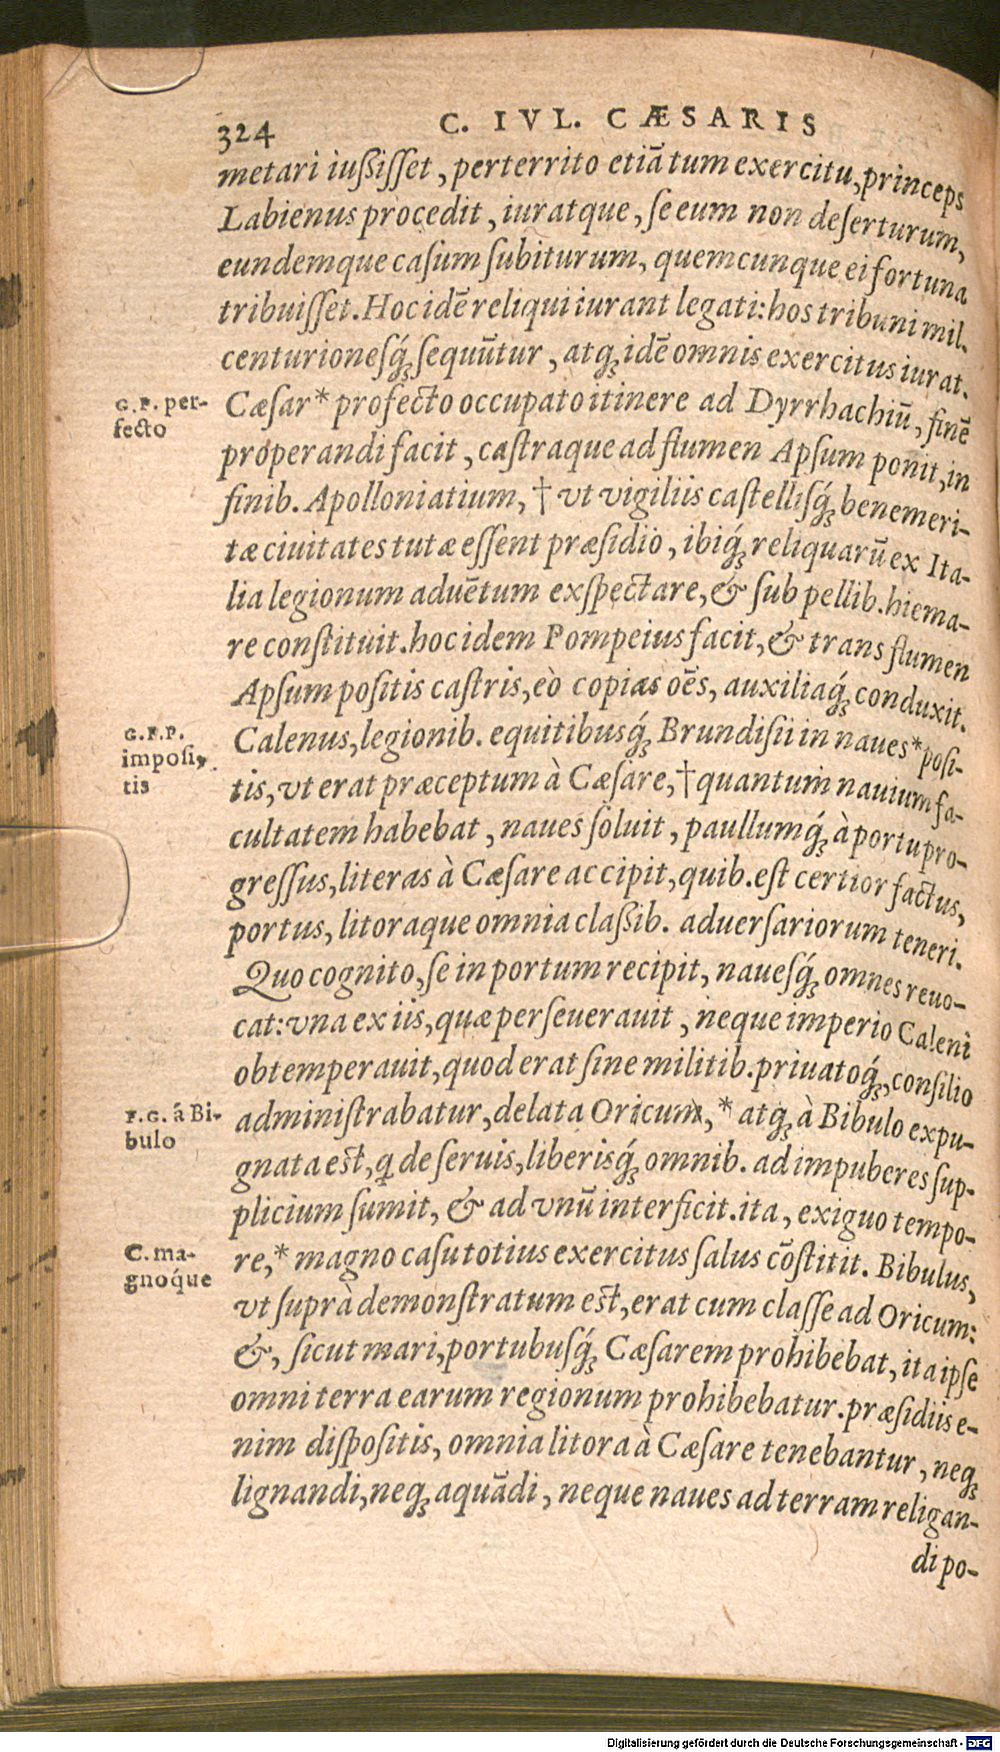 324 C. IVL. CÆSARIS
metari iußiſſet, perterrito etiā tum exercitu, princeps
Labienus procedit, iuratque, ſe eum non deſerturum,
eundemque caſum ſubiturum, quemcunque ei fortuna
tribuiſſet. Hoc idē reliqui iurant legati: hos tribuni mil.
centurionesq́; ſequūtur, atq; idē omnis exercitus iurat.
G. F. per-
fecto
Cæſar * profecto occupato itinere ad Dyrrhachiū, finē
properandi facit, caſtraque ad flumen Apſum ponit, in
finib. Apolloniatium, † vt vigiliis caſtellisq́; benemeri-
tæ ciuitates tutæ eſſent præſidio, ibiq́; reliquarū ex Ita-
lia legionum aduētum exſpectare, & ſub pellib. hiema-
re conſtituit. hoc idem Pompeius facit, & trans flumen
Apſum poſitis caſtris, eò copias oēs, auxiliaq́; conduxit.
G. F. P.
impoſi-
tis
Calenus, legionib. equitibusq́; Brundiſii in naues * poſi-
tis, vt erat præceptum à Cæſare, † quantum nauium fa-
cultatem habebat, naues ſoluit, paullumq́; à portu pro-
greſſus, literas à Cæſare accipit, quib. eſt certior factus,
portus, litoraque omnia claßib. aduerſariorum teneri.
Quo cognito, ſe in portum recipit, naueſq́; omnes reuo-
cat: vna ex iis, quæ perſeuerauit, neque imperio Caleni
obtemperauit, quod erat ſine militib. priuatoq́; conſilio
F. G. á Bi-
bulo
adminiſtrabatur, delata Oricum, * atq; à Bibulo expu-
gnata eſt, q de ſeruis, liberiſq́; omnib. ad impuberes ſup-
plicium ſumit, & ad vnū interficit. ita, exiguo tempo-
C. ma-
gnoq́ue
re, * magno caſu totius exercitus ſalus cōſtitit. Bibulus,
vt ſuprà demonſtratum eſt, erat cum claſſe ad Oricum:
&, ſicut mari, portubuſq́; Cæſarem prohibebat, ita ipſe
omni terra earum regionum prohibebatur. præſidiis e-
nim diſpoſitis, omnia litora à Cæſare tenebantur, neq;
lignandi, neq; aquādi, neque naues ad terram religan-
di po-
Digitalisierung gefördert durch die Deutsche Forschungsgemeinschaft - DFG